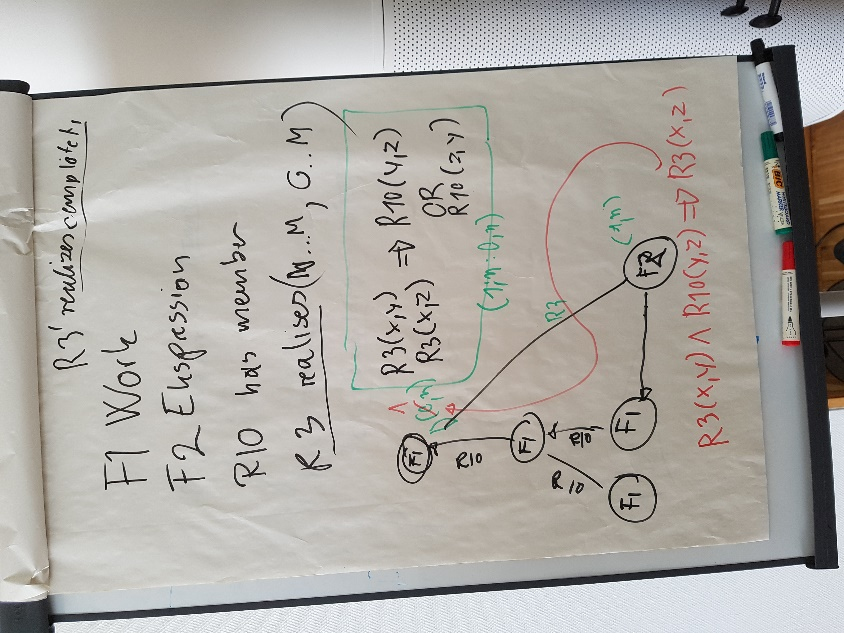 R3' realizes complitet,
F1 Work
F2 Ekspression
R10 has member
R3 realises (M...M, 0...M)
R3(x,y) => R10(y,z)
R3(x,z) OR
R10(z,y)
(1,n : 0,n)
(0,n)
R3
(1,n)
F1
R10
F1
R10
R10
F1
F1
F2
R3(x,y) ∧ R10(y,z) => R3(x,z)